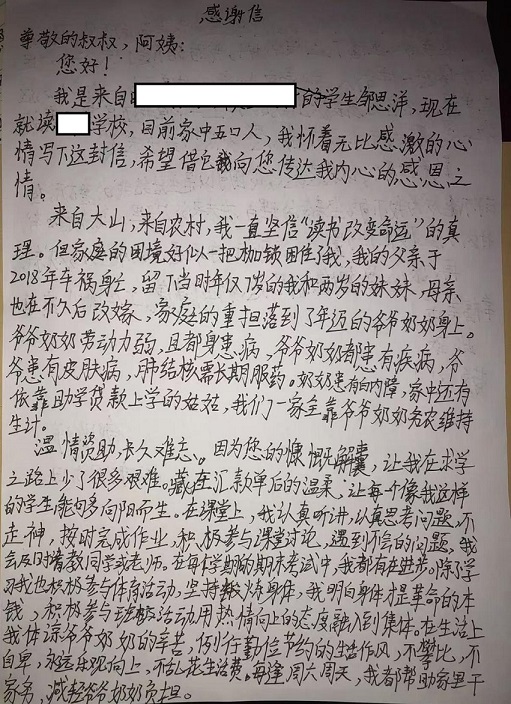 感谢信
尊敬的叔叔,阿姨:
您好!
我是来自的学生邹思洋,现在
就读学校,目前家中五口人,我怀着无比感激的心
情写下这封信,希望借它我向您传达我内心的感恩之
情。
来自大山,来自农村,我一直坚信“读书改变命运”的真
理。但家庭的困境好似一把枷锁困住了我,我的父亲于
2018年车祸身亡,留下当时年仅7岁的我和两岁的妹妹,母亲
也在不久后改嫁,家庭的重担落到了年迈的爷爷奶奶身上。
爷爷奶奶劳动力弱,且都身患病,爷爷奶奶都患有疾病,爷
爷患有皮肤病,肺结核需长期服药。奶奶患有白内障,家中还有
依靠助学贷款上学的姑姑,我们一家全靠爷爷奶奶务农维持
生计。
温情资助,长久难忘。因为您的慷慨解囊,让我在求学
之路上少了很多艰难。藏在汇款单后的温柔,让每个像我这样
的学生能向多向阳而生。在课堂上,我认真听讲,认真思考问题,不
走神,按时完成作业,积极参与课堂讨论,遇到不会的问题,我
会及时请教同学或老师。在每学期的期末考试中,我都有在进步。除了学
习我也积极参与体育活动,坚持锻炼身体,我明白身体才是革命的本
钱,积极参与班级活动用热情向上的态度融入到集体。在生活上
我体谅爷爷奶奶的辛苦,例行勤俭节约的生活作风,不攀比,不
自卑,永远乐观向上,不乱花生活费。每逢周六周天,我都帮助家里干
家务,减轻爷爷奶奶负担。